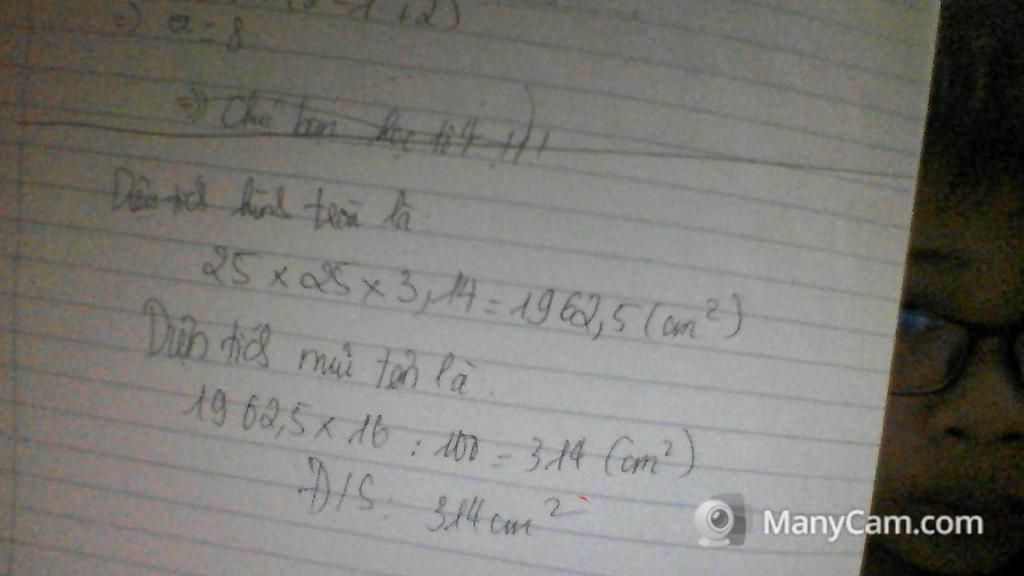 =) a = 8
=) Chúc bạn học tốt !!!
Diện tích hình tròn là
25 x 25 x 3,14 = 1962,5 (cm²)
Diện tích mũi tên là.
1962,5 x 16 : 100 = 314 (cm²)
Đ/S: 314 cm²
ManyCam.com